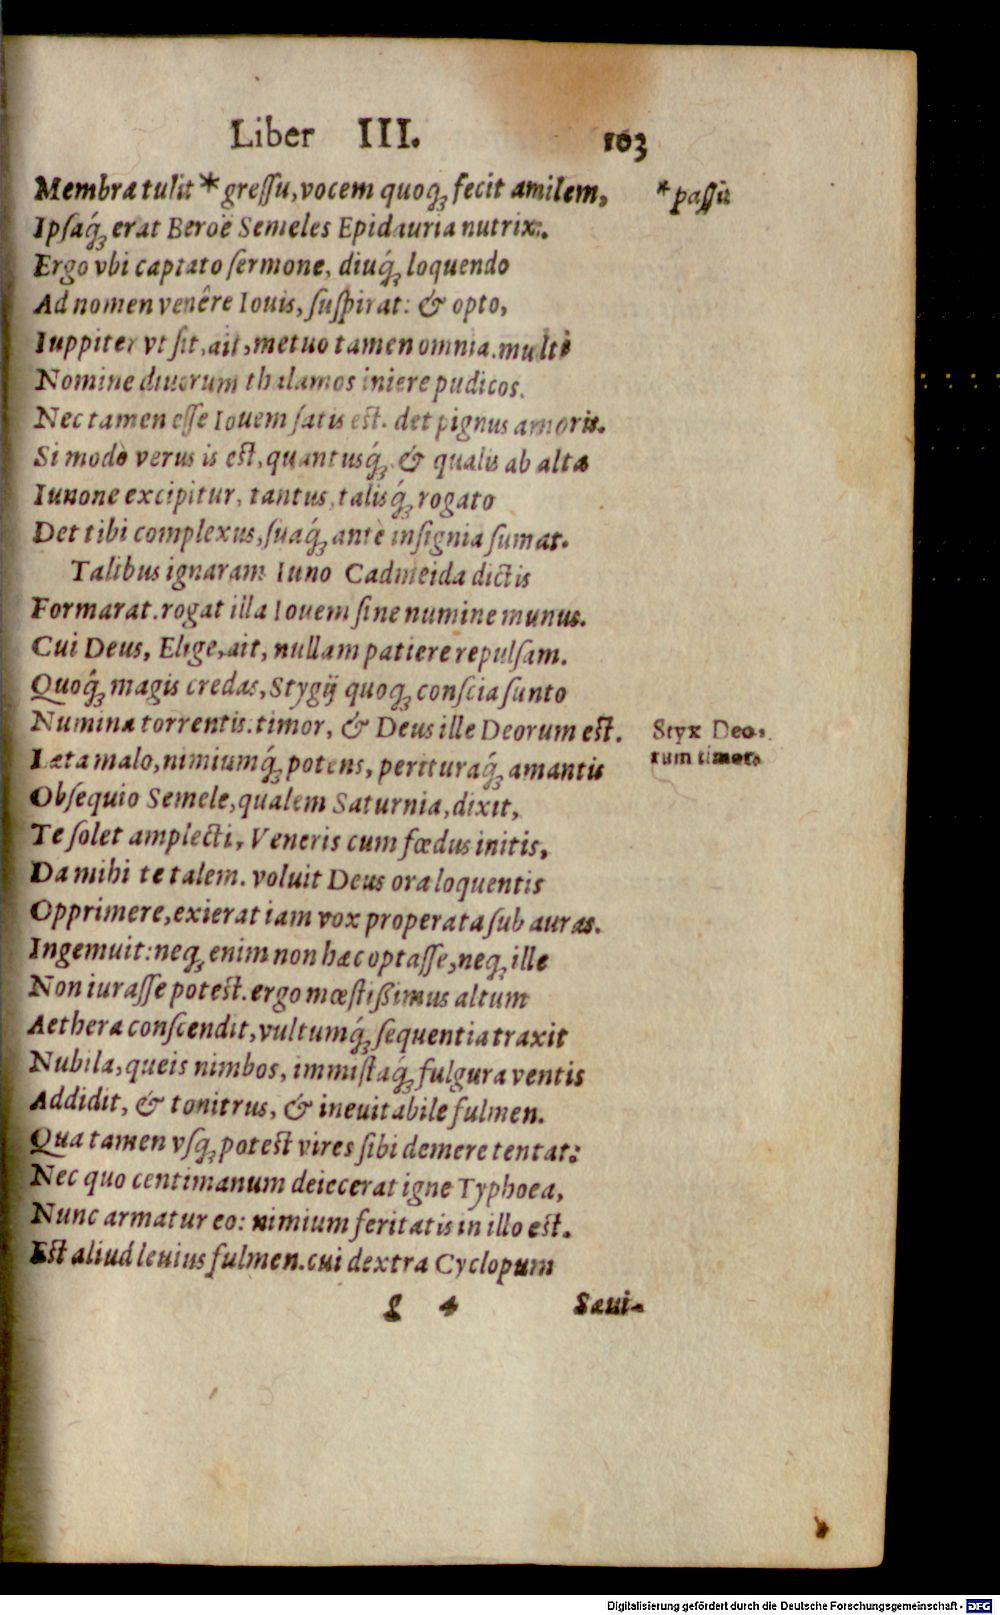 Liber III. 103
Membra tulit * greſſu, vocem quoq́ꝫ fecit amilem, * paſſu
Ipſaq́ꝫ erat Beroë Semeles Epidauria nutrix.
Ergo vbi captato ſermone, diuq́ꝫ loquendo
Ad nomen venêre Iouis, ſuſpirat: & opto,
Iuppiter vt ſit, ait, metuo tamen omnia. multi
Nomine diuorum thalamos iniere pudicos.
Nec tamen eſſe Iouem ſatis eſt. det pignus amoris.
Si modò verus is eſt, quantusq́ꝫ & qualis ab alta
Iunone excipitur, tantus, talisq́ꝫ rogato
Det tibi complexus, ſuaq́ꝫ antè inſignia ſumat.
Talibus ignaram Iuno Cadmeida dictis
Formarat. rogat illa Iouem ſine numine munus.
Cui Deus, Elige, ait, nullam patiere repulſam.
Quoq́ꝫ magis credas, Stygij quoqꝫ conſcia ſunto
Numina torrentis. timor, & Deus ille Deorum eſt. Styx Deo-
rum timor.
Læta malo, nimiumq́ꝫ potens, perituraq́ꝫ amantis
Obſequio Semele, qualem Saturnia, dixit,
Te ſolet amplecti, Veneris cum fœdus initis,
Da mihi te talem. voluit Deus ora loquentis
Opprimere, exierat iam vox properata ſub auras.
Ingemuit: neqꝫ enim non hæc optaſſe, neqꝫ ille
Non iuraſſe poteſt. ergo mœſtißimus altum
Aethera conſcendit, vultumq́ꝫ ſequentia traxit
Nubila, queis nimbos, immiſtaq́ꝫ fulgura ventis
Addidit, & tonitrus, & ineuitabile fulmen.
Qua tamen vſqꝫ poteſt vires ſibi demere tentat:
Nec quo centimanum deiecerat igne Typhoea,
Nunc armatur eo: nimium feritatis in illo eſt.
Eſt aliud leuius fulmen. cui dextra Cyclopum
g 4 Sæui-
Digitalisierung gefördert durch die Deutsche Forschungsgemeinschaft - DFG